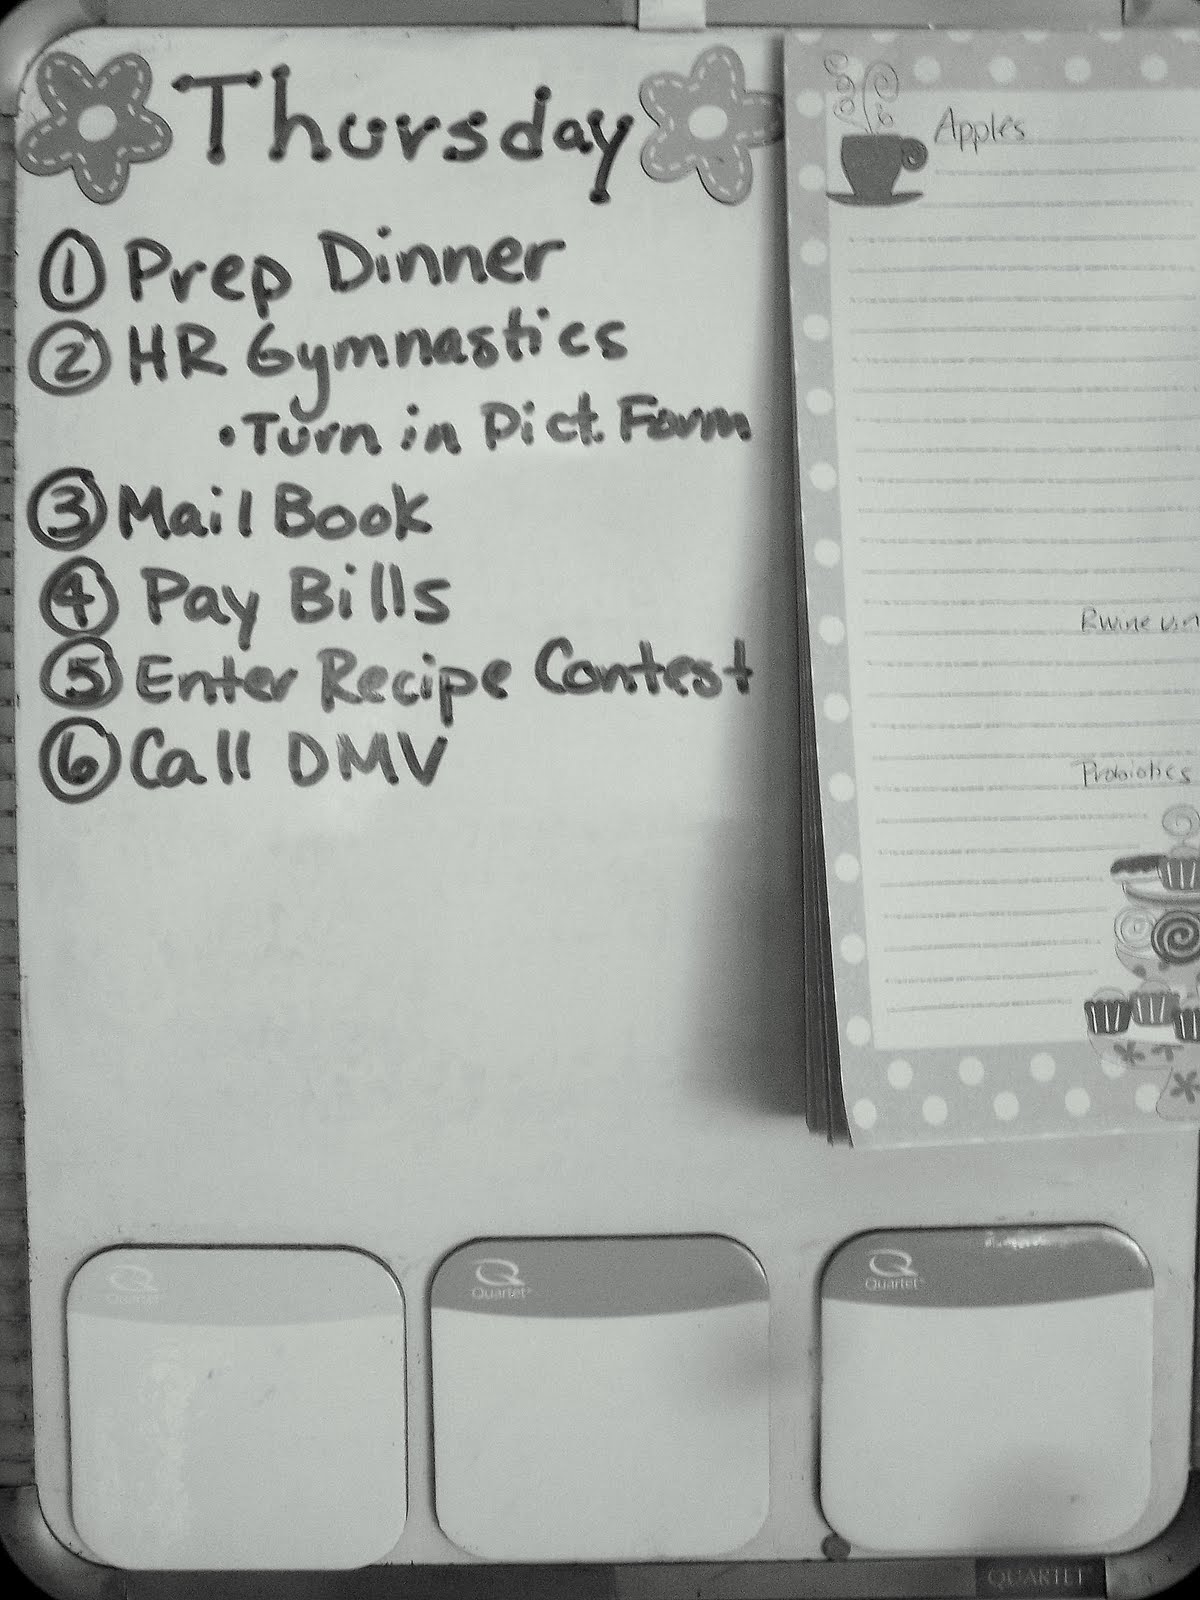 Thursday
① Prep Dinner
② HR Gymnastics
• Turn in Pict. Form
③ Mail Book
④ Pay Bills
⑤ Enter Recipe Contest
⑥ Call DMV
Apples
Rwine vin
Probiotics
Quartet
Quartet
Quartet
QUARTET